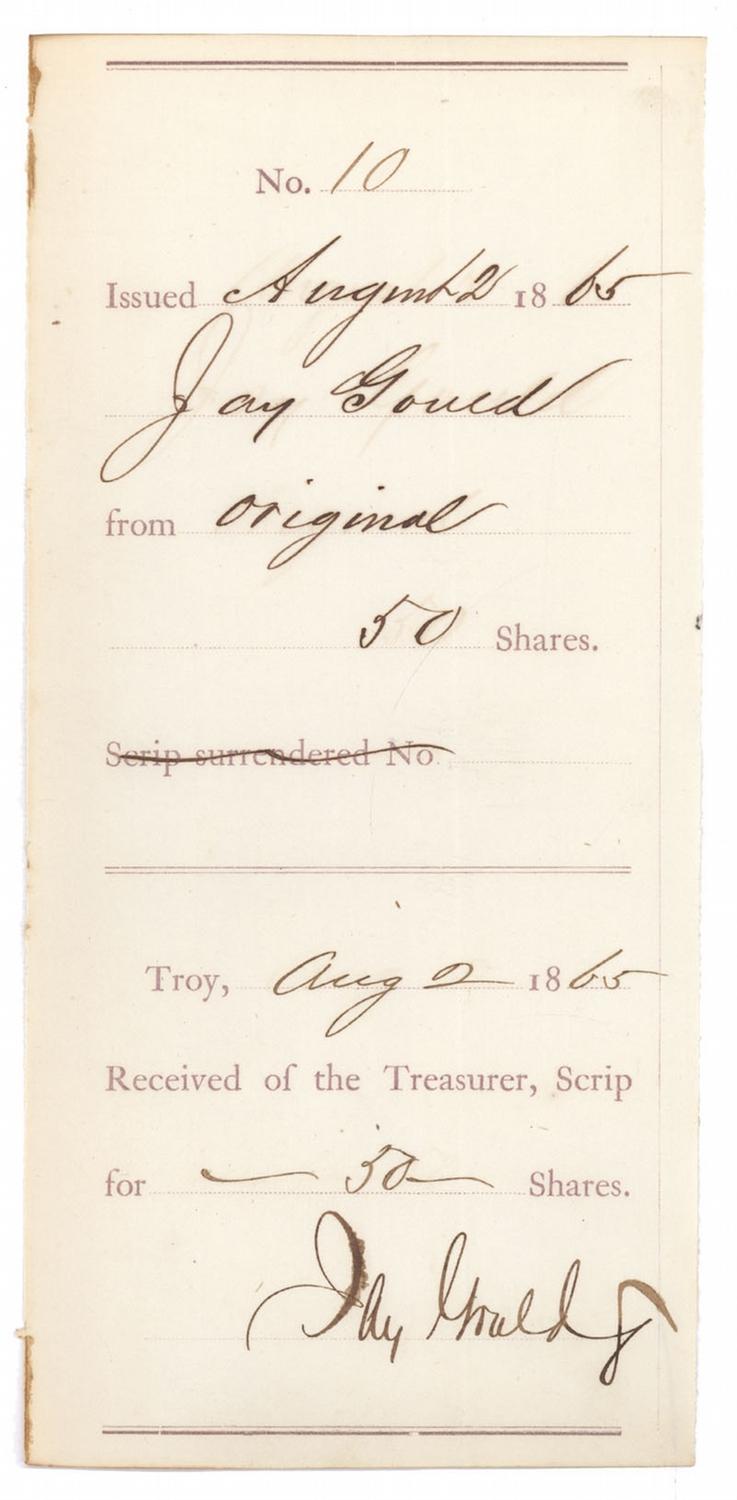 No. 10
Issued August 2 1865
Jay Gould
from original
50 Shares.
Scrip surrendered No
Troy, Aug 2 1865
Received of the Treasurer, Scrip
for — 50 — Shares.
Jay Gould